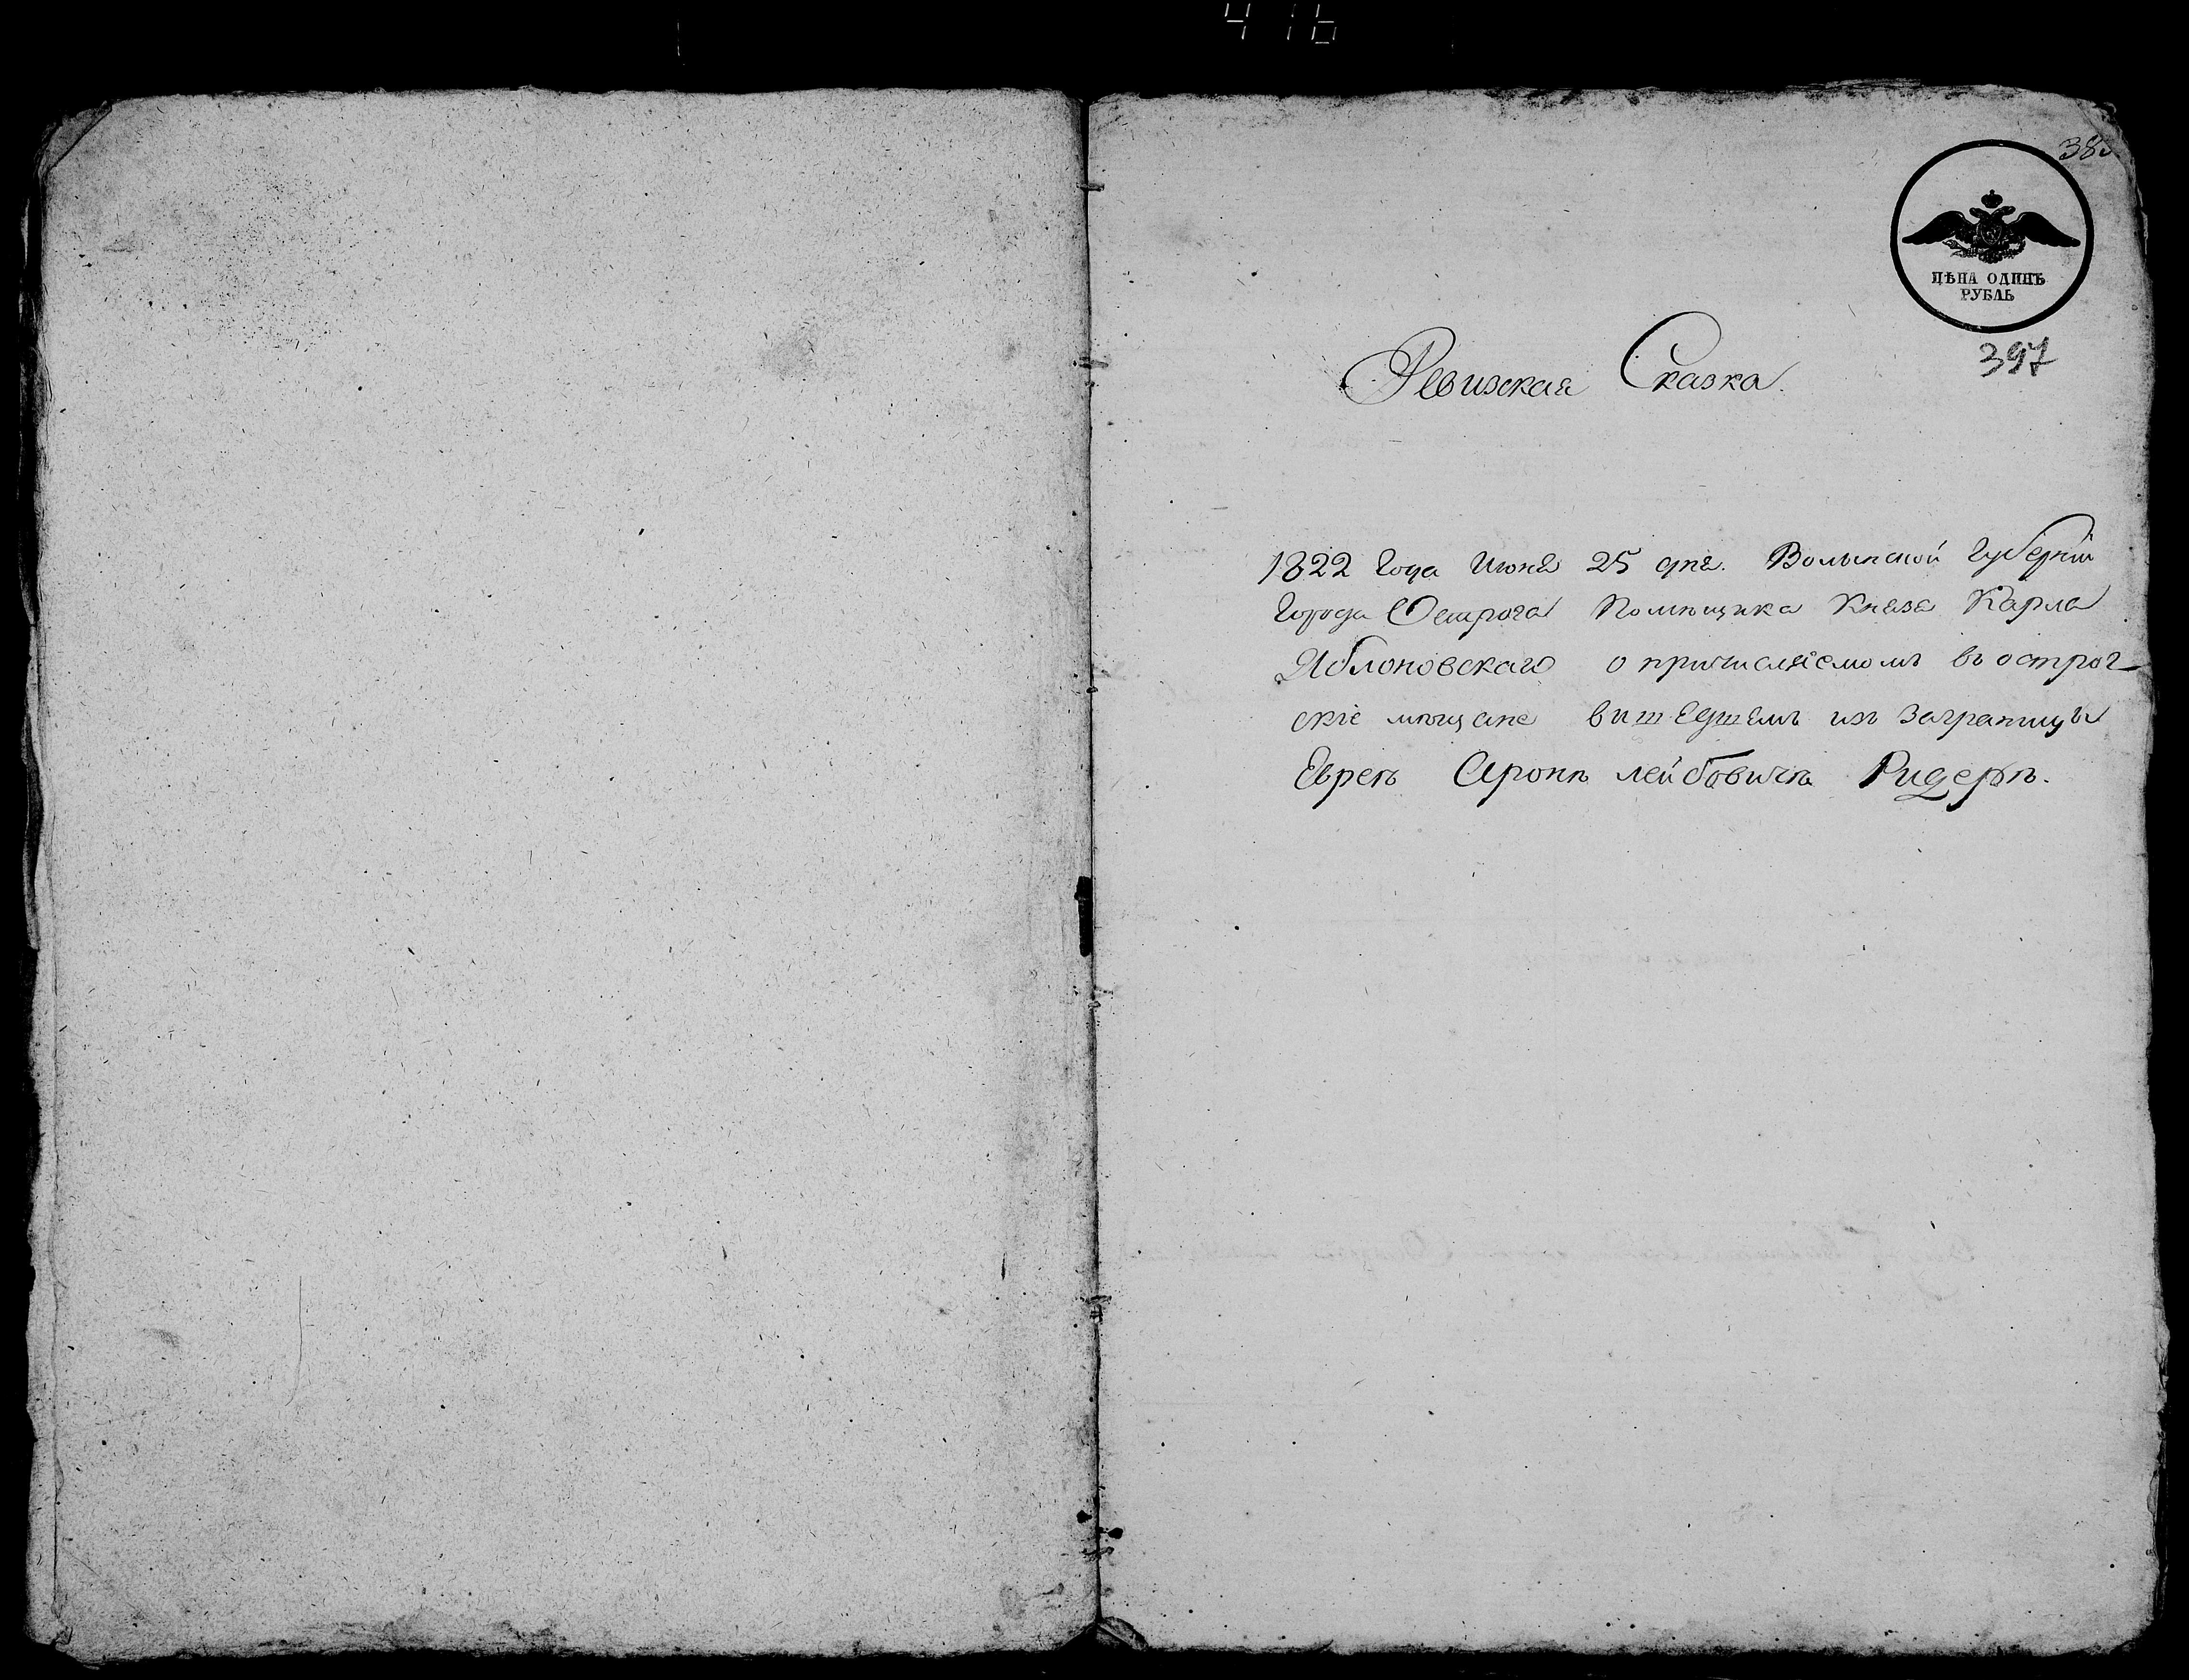 416
38
ЦѢНА ОДИНЪ
РУБЛЬ
397
Ревизская Сказка.
1822 Года Июня 25 дня. Волынской Губерніи
Города Острога Помѣщика Князя Карла
Яблоновскаго о причисляемомъ въ острог-
скіе мѣщане вишедшемъ изъ Заграницы
Евреѣ Аронѣ лейбовичѣ Ридерѣ.